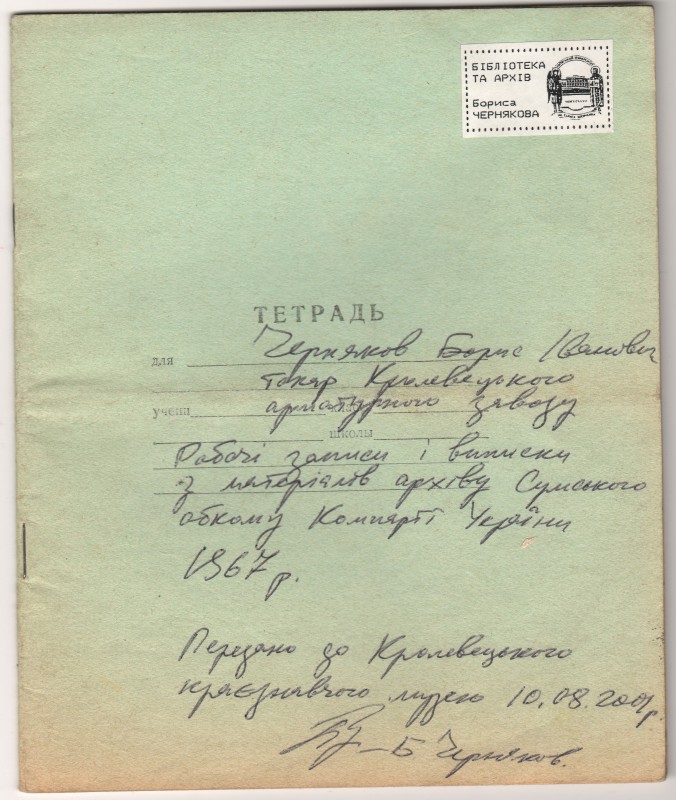 БІБЛІОТЕКА
ТА АРХІВ
Бориса
ЧЕРНЯКОВА
ТЕТРАДЬ
для Черняков Борис Іванович
токар Кролевецького
учени арматурного заводу
школы
Робочі записи і виписки
з матеріалів архіву Сумського
обкому Компартії України
1967 р.
Передано до Кролевецького
краєзнавчого музею 10.08.2001 р.
Б Черняков.